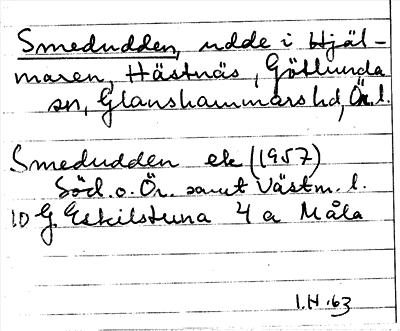 Smedudden, udde i Hjäl-
maren, Hästnäs, Götlunda
sn, Glanshammars hd, Ör. l.
Smedudden ek (1957)
Söd. o. Ör. samt Västm. l.
10 G. Eskilstuna 4 a Måla
I.H. 63